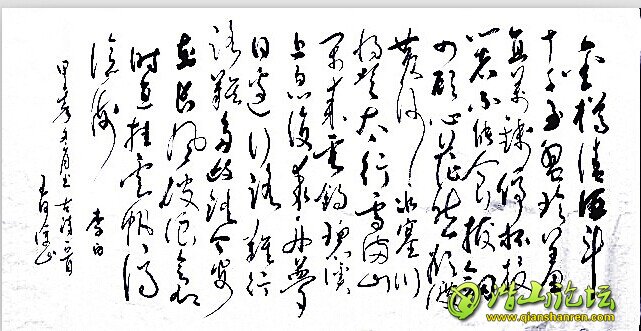 金樽清酒斗
十千玉盘珍羞
直万钱停杯投
箸不能食拔剑
四顾心茫然欲渡
黄河冰塞川
将登太行雪满山
闲来垂钓碧溪
上忽复乘舟梦
日边行路难行
路难多歧路今安
在长风破浪会有
时直挂云帆济
沧海
李白
潜山论坛
www.qianshanren.com